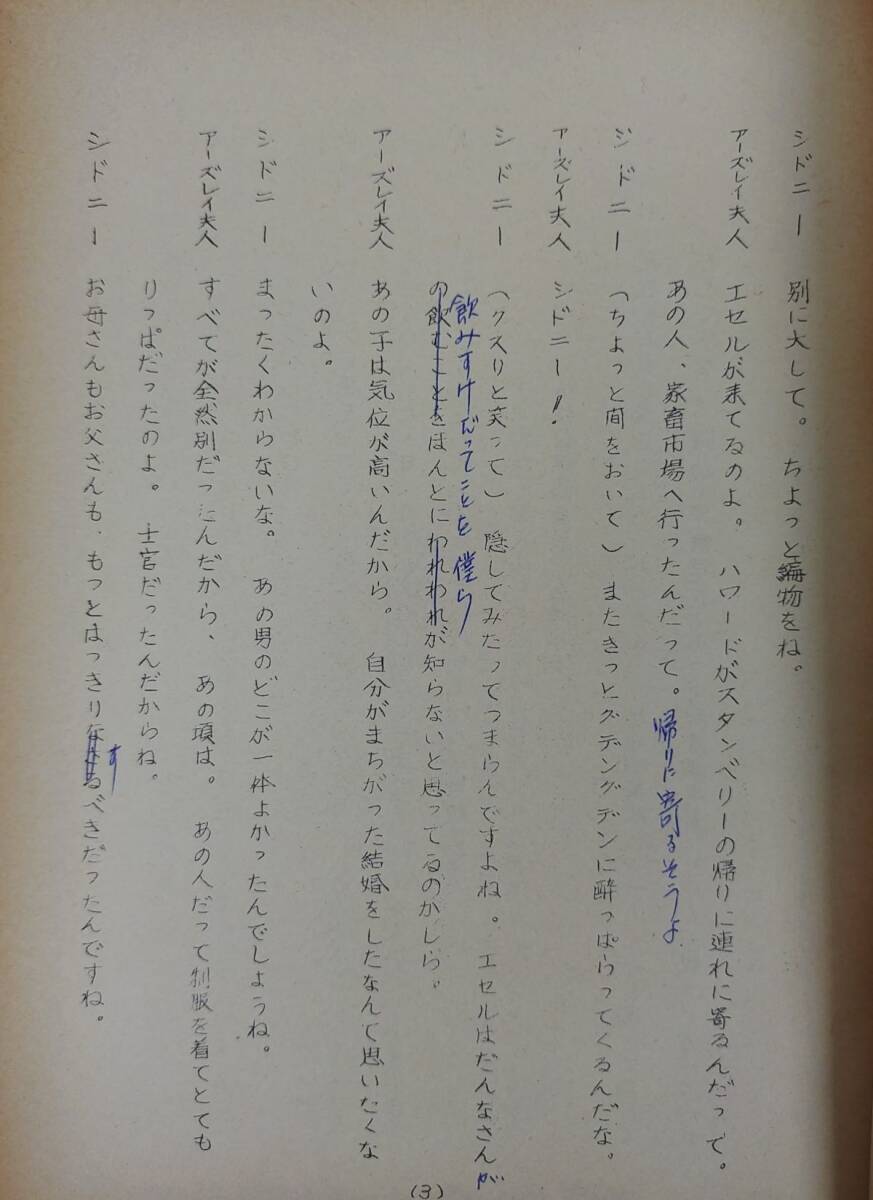 シドニー　別に大して。ちょっと編物をね。
アーズレイ夫人　エセルが来てるのよ。ハワードがスタンベリーの帰りに連れに寄るんだって。
あの人、家畜市場へ行ったんだって。帰りに寄るそうよ
シドニー　（ちょっと間をおいて）またきっとグデングデンに酔っぱらってくるんだな。
アーズレイ夫人　シドニー！
シドニー　（クスリと笑って）隠してみたってつまらんですよね。エセルはだんなさんが
飲みすけだってことを僕ら
の飲むことをほんとにわれわれが知らないと思ってるのかしら。
アーズレイ夫人　あの子は気位が高いんだから。自分がまちがった結婚をしたなんて思いたくな
いのよ。
シドニー　まったくわからないな。あの男のどこが一体よかったんでしょうね。
アーズレイ夫人　すべてが全然別だったんだから、あの項は。あの人だって制服を着てとても
りっぱだったのよ。士官だったんだからね。
シドニー　お母さんもお父さんも、もっとはっきりなさるべきだったんですね。
す
（3）